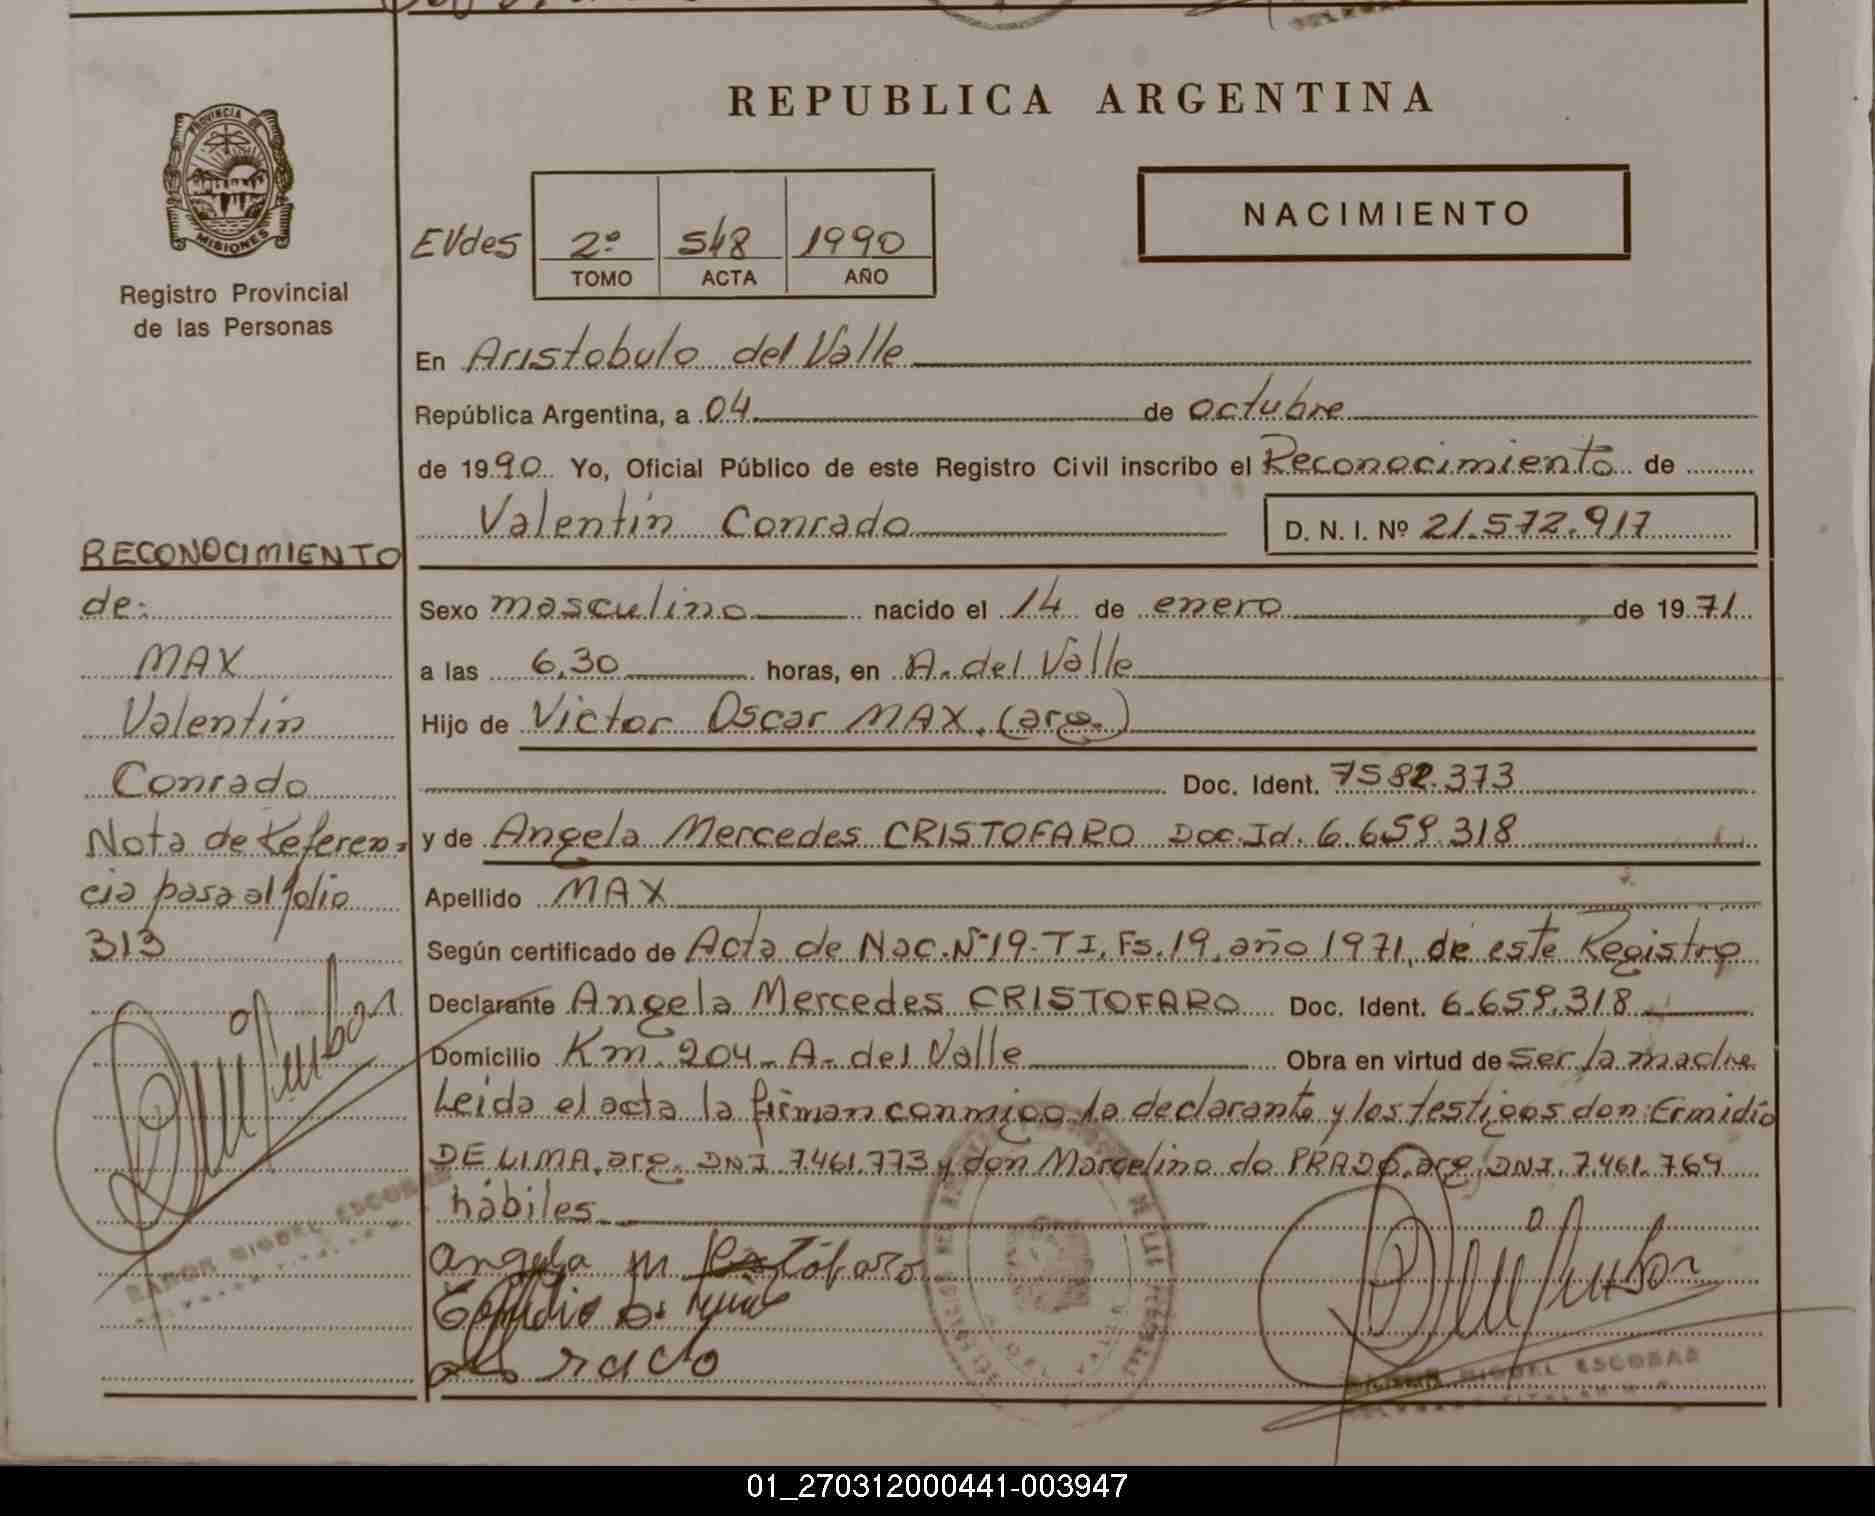 REPUBLICA ARGENTINA
PROVINCIA DE
MISIONES
Registro Provincial
de las Personas
NACIMIENTO
EVdes 2º 548 1990
TOMO ACTA AÑO
En Aristobulo del Valle
República Argentina, a 04 de octubre
de 1990 Yo, Oficial Público de este Registro Civil inscribo el Reconocimiento de
Valentin Conrado D. N. I. Nº 21.572.917
RECONOCIMIENTO
de:
MAX
Valentin
Conrado
Nota de Referen=
cia pasa al folio
313
Sexo masculino nacido el 14 de enero de 1971
a las 6,30 horas, en A. del Valle
Hijo de Victor Oscar MAX. (arg.)
Doc. Ident. 7582.373
y de Angela Mercedes CRISTOFARO Doc.Id. 6.659.318
Apellido MAX
Según certificado de Acta de Nac. Nº19-TI, Fs.19, año 1971, de este Registro
Declarante Angela Mercedes CRISTOFARO Doc. Ident. 6.659.318
Domicilio Km. 204- A. del Valle Obra en virtud de ser la madre
Leida el acta la firman conmigo la declarante y los testigos don: Ermidio
DE LIMA, arg. DNI 7.461.773 y don Marcelino do PRADO, arg. DNI. 7.461.769
hábiles
Angela M
RAMON MIGUEL ESCOBAR
RAMON MIGUEL ESCOBAR
01_270312000441-003947